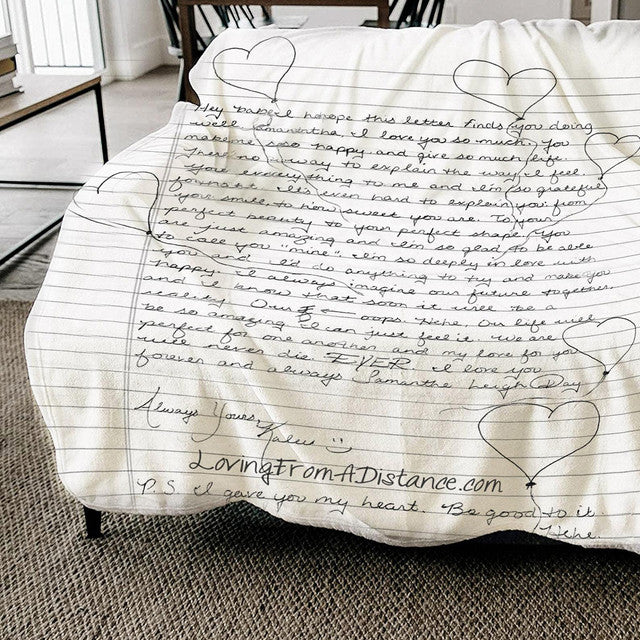 Hey babe, I hope this letter finds you doing
well Samantha. I love you so much. You
make me soo happy and give so much life.
Theres no way to explain the way I feel.
You everything to me and I'm so grateful
for that. It's even hard to explain you from
your smile to how sweet you are. To your
perfect beauty to your perfect shape. You
are just amazing and I'm so glad to be able
to call you "mine". I'm so deeply in love with
you and I'd do anything to try and make you
happy. I always imagine our future together.
and I know that soon it will be a
reality. Our ← oops. Hehe. Our life will
be so amazing I can just feel it. We are
perfect for one another and my love for you
will never die. EVER. I love you
forever and always Samantha Leigh Day
Always Yours,
Kaleu :)
LovingFromADistance.com
P.S. I gave you my heart. Be good to it
Hehe